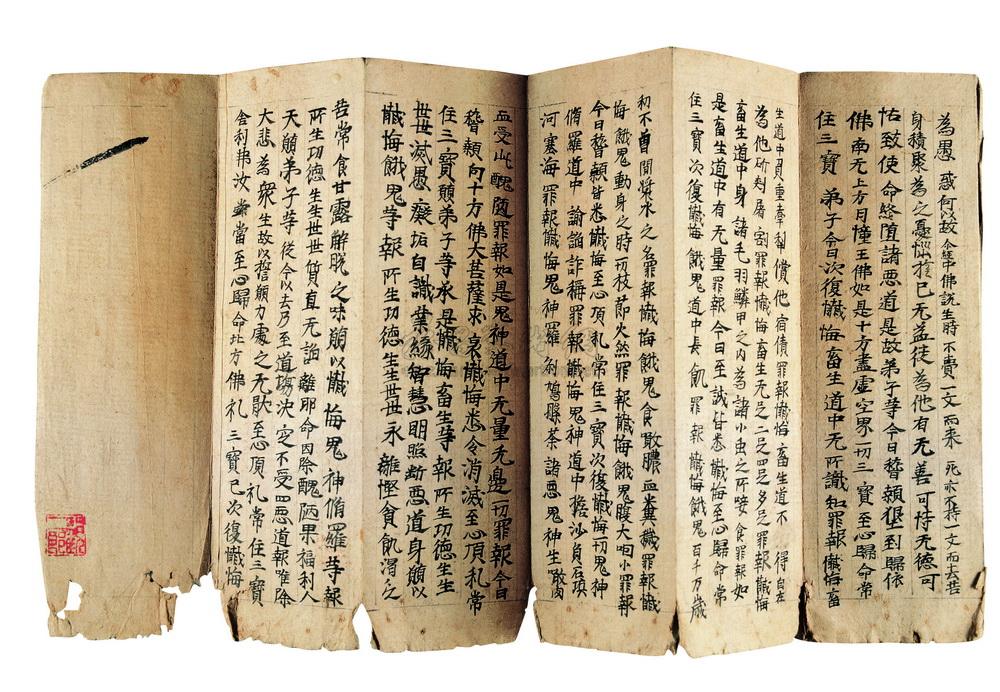 為愚惑何以故经中佛說生時不賫一文而来死亦不持一文而去苦
身積聚為之憂惱於己无益徒為他有无善可恃无德可
怙致使命終墮諸惡道是故弟子等今日稽顙懇到歸依
佛南无上方月幢王佛如是十方盡虛空界一切三寶至心歸命常
住三寶弟子今日次復懴悔畜生道中无所識知罪報懴悔畜
生道中負重牽犁償他宿債罪報懴悔畜生道不得自在
為他斫刺屠割罪報懴悔畜生无足二足四足多足罪報懴悔
畜生道中身諸毛羽鱗甲之内為諸小虫之所唼食罪報如
是畜生道中有无量罪報今日至誠皆悉懴悔至心歸命常
住三寶次復懴悔餓鬼道中長飢罪報懴悔餓鬼百千万歲
初不曾聞漿水之名罪報懴悔餓鬼食噉膿血糞穢罪報懴
悔餓鬼動身之時一切枝節火然罪報懴悔餓鬼腹大咽小罪報
今日稽顙皆悉懴悔至心頂礼常住三寶次復懴悔一切鬼神
脩羅道中諭諂詐稱罪報懴悔鬼神道中擔沙負石填
河塞海罪報懴悔鬼神羅刹鳩槃荼諸惡鬼神生噉肉
血受此醜陋罪報如是鬼神道中无量无邊一切罪報今日
稽顙向十方佛大菩薩求哀懴悔悉令消滅至心頂礼常
住三寶願弟子等承是懴悔畜生等報所生功德生生
世世滅愚癡垢自識業緣智慧明照断惡道身願以
懴悔餓鬼等報所生功德生生世世永離慳貪飢渴之
苦常食甘露解脱之味願以懴悔鬼神脩羅等報
所生功德生生世世質直无諂離邪命因除醜陋果福利人
天願弟子等從今以去乃至道場決定不受四惡道報唯除
大悲為衆生故以誓願力處之无猒至心頂礼常住三寶
舍利弗汝等當至心歸命北方佛礼三寶已次復懴悔